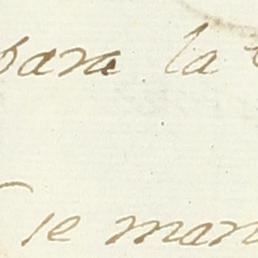 para la
se man